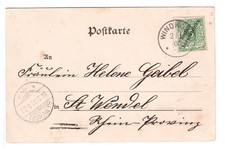 Postkarte
An
Fräulein Helene Gaibel
in St. Wendel
Rhein-Provinz